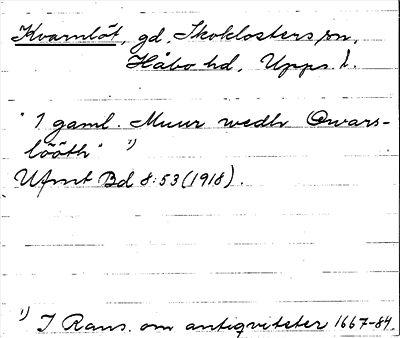 Kvarnlöt, gd. Skoklosters sn,
Håbo hd, Upps. l.
"1 gaml. Muur wedh Qwars-
lööth" 1)
Ufmt Bd 8:53 (1918).
1) J Rans. om antiqviteter 1667-84.